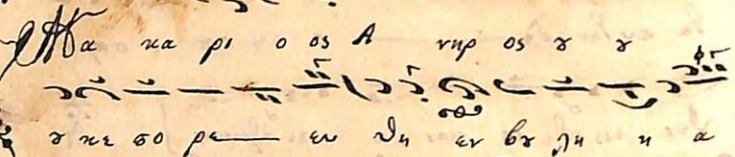 Μα κα ρι ο ος Α νηρ ος ου ου
ου κε πο ρε ευ θη εν βου λη η α